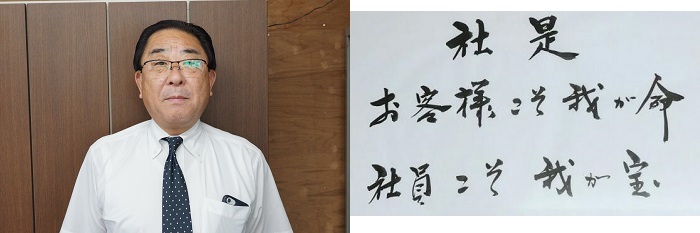 社是
お客様こそ我が命
社員こそ我が宝